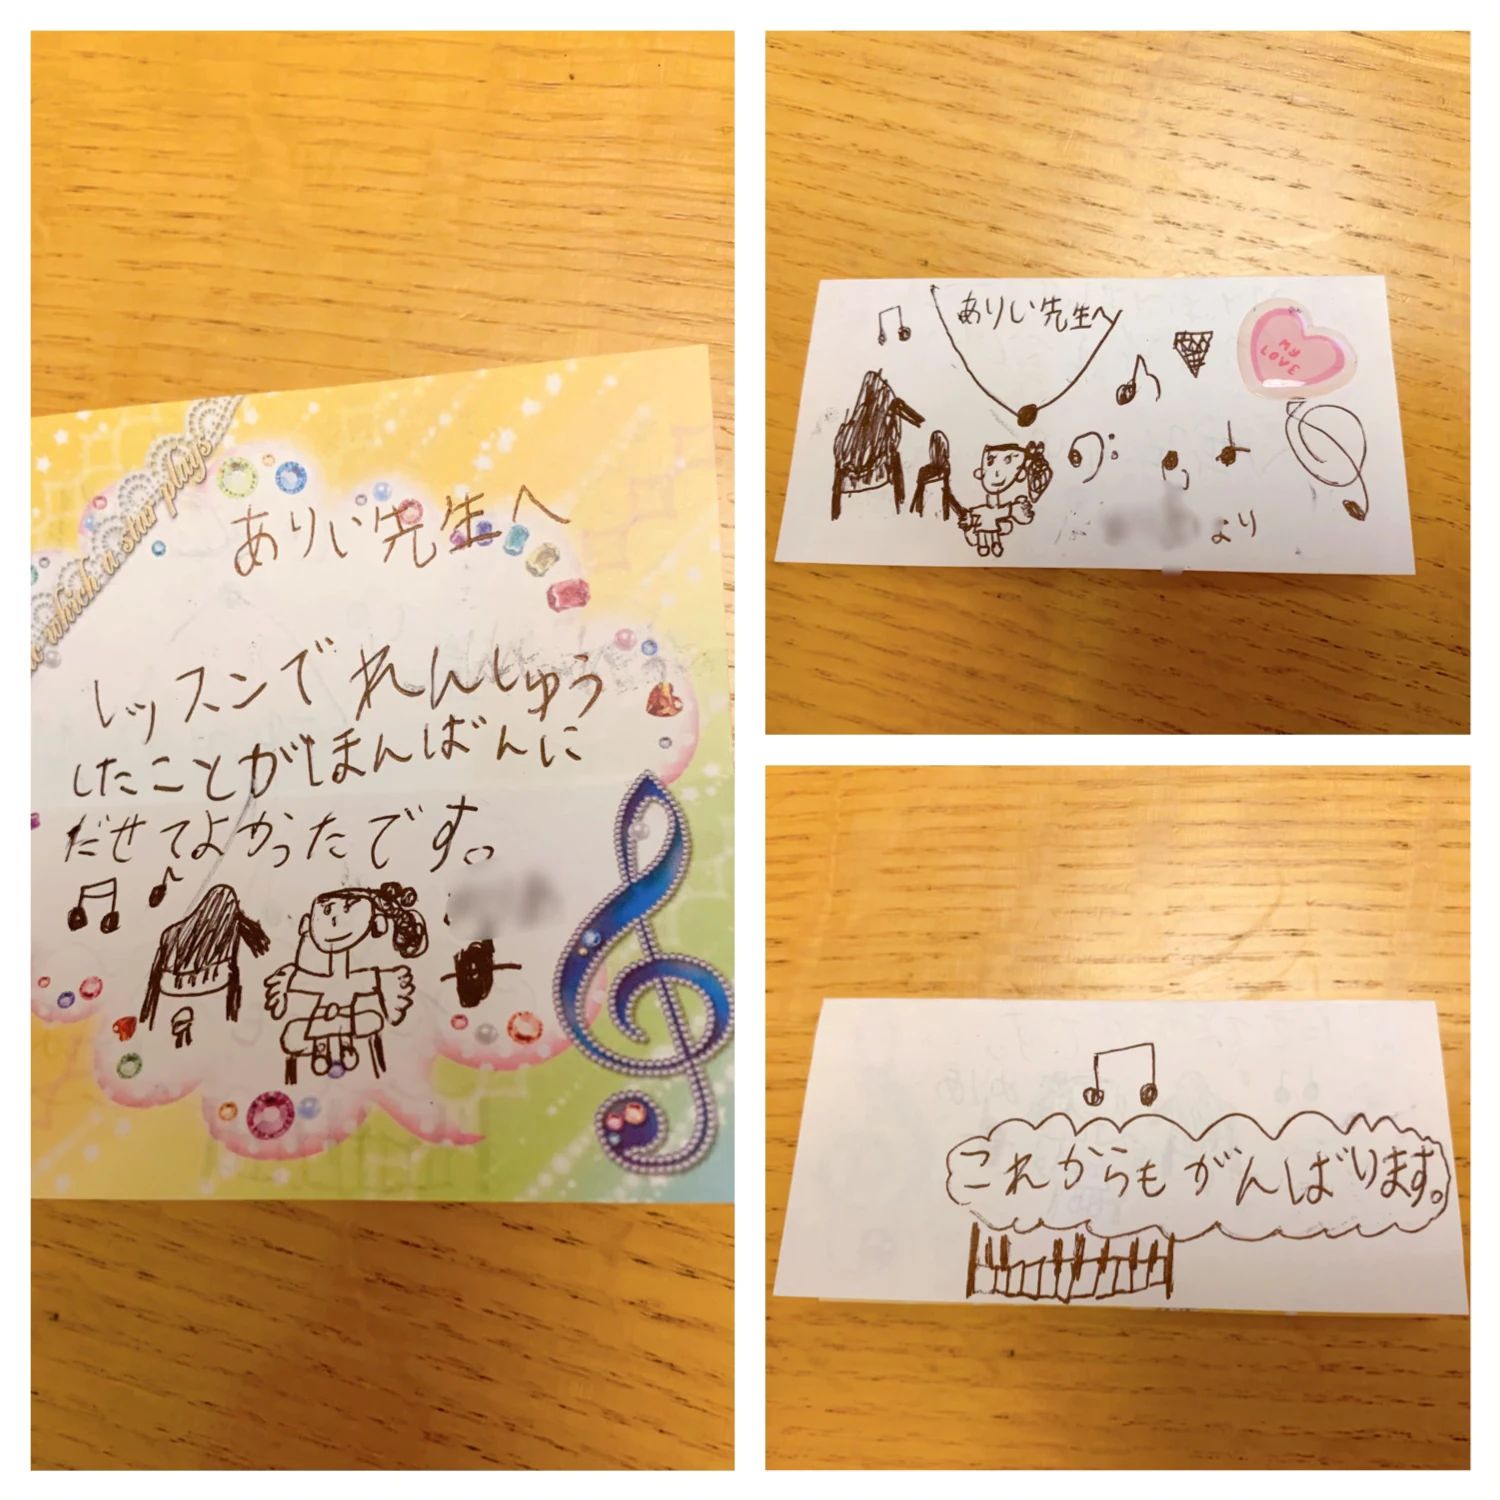 which a star plays
ありい先生へ
レッスンでれんしゅう
したことがほんばんに
だせてよかったです。
ありい先生へ
MY
LOVE
より
これからもがんばります。